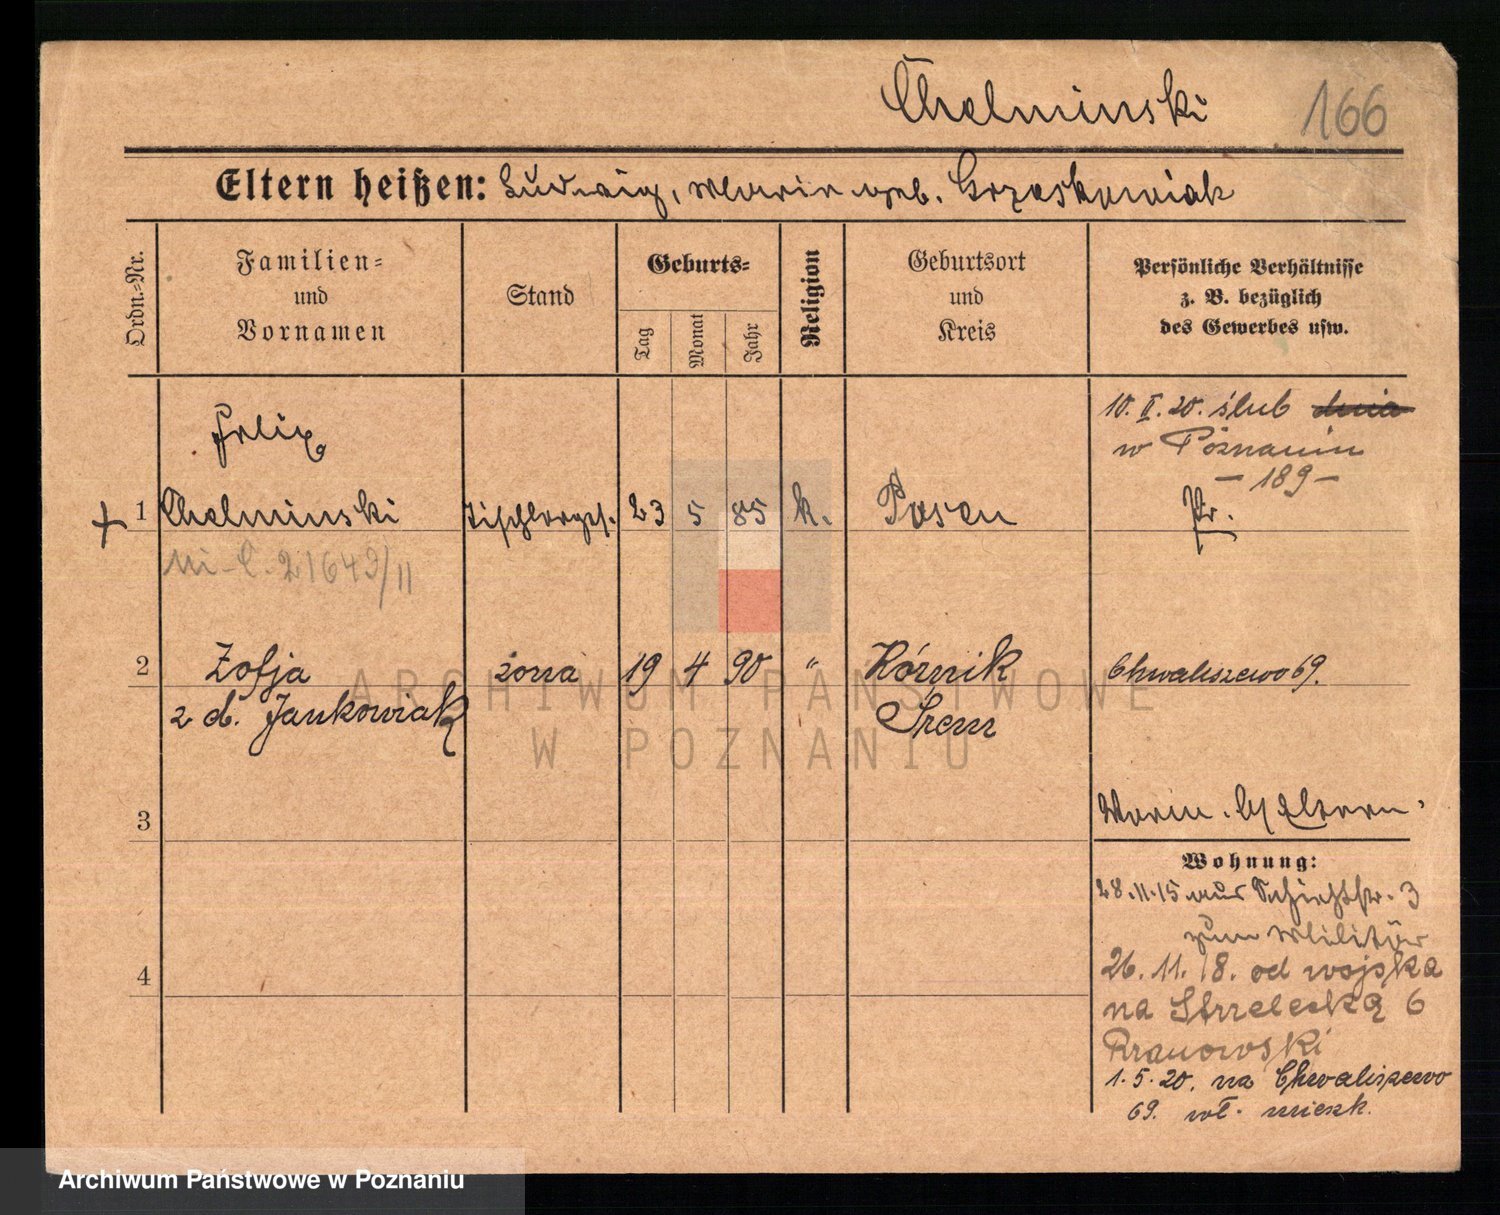 Chelminski 166
Eltern heißen: Ludwig, Marie geb. Grzeskowiak
Ordn.-Nr.
Familien-
und
Vornamen
Stand
Geburts-
Tag
Monat
Jahr
Religion
Geburtsort
und
Kreis
Persönliche Verhältnisse
z. B. bezüglich
des Gewerbes usw.
10. II. 20. ślub dnia
w Poznaniu
- 189 -
Felix
+ 1 Chelminski Tischlerges. 23 5 85 k. Posen Pr.
21643/11
2 Zofja żona 19 4 90 " Kórnik Chwaliszewo 69.
z d. Jankowiak Śrem
3
Eltern.
Wohnung:
28.11.15 aus Schichtstr. 3
zum Militär
4
26. 11. 18. od wojska
na Strzelecką 6
1. 5. 20. na Chwaliszewo
69. wł. mieszk.
ARCHIWUM PAŃSTWOWE
W POZNANIU
Archiwum Państwowe w Poznaniu